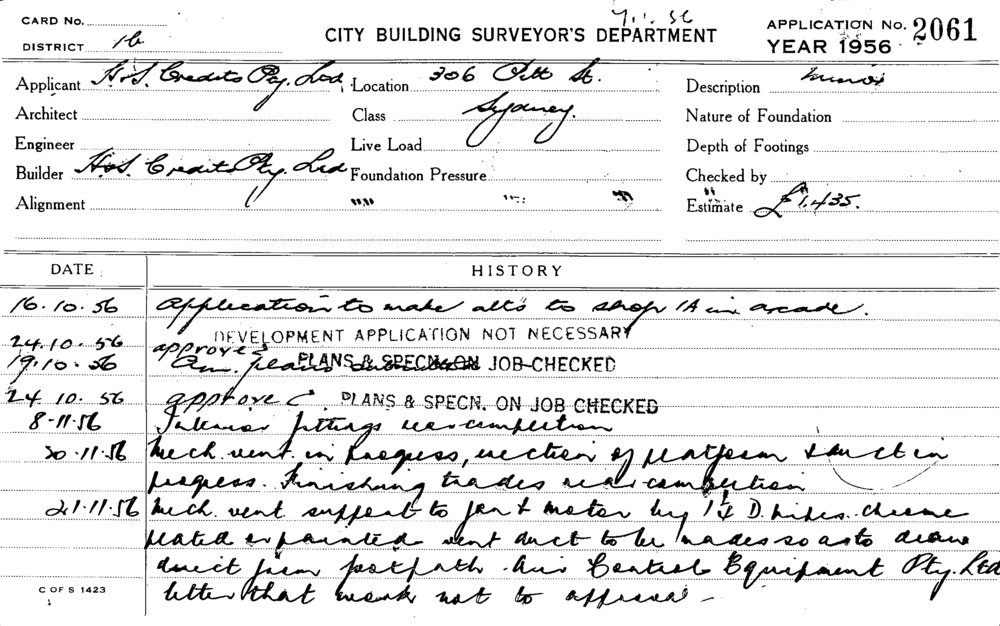 CARD No.
7.1.56
CITY BUILDING SURVEYOR'S DEPARTMENT
APPLICATION No. 2061
DISTRICT 1b
YEAR 1956
Applicant H&S. Credits Pty. Ltd.
Location 306 Pitt St.
Description minor
Architect
Class Sydney.
Nature of Foundation
Engineer
Live Load
Depth of Footings
Builder H&S. Credits Pty. Ltd
Foundation Pressure
Checked by
Alignment " " " "
Estimate £1,435.
DATE
HISTORY
16.10.56 Application to make alts to shop 1A in arcade.
DEVELOPMENT APPLICATION NOT NECESSARY
24.10.56 approved
19.10.56 Am. plans PLANS & SPECN. ON JOB CHECKED
24.10.56 approved. PLANS & SPECN. ON JOB CHECKED
8.11.56 Interior fittings near completion
20.11.56 Mech. vent. in progress, erection of platform & duct in
progress. Finishing trades near completion
21.11.56 Mech. vent support to fan & motor by 1¼ D. pipes. chrome
plated or painted vent duct to be made so as to draw
direct from footpath. Air Control Equipment Pty. Ltd
letter that work not to approval -
C OF S 1423